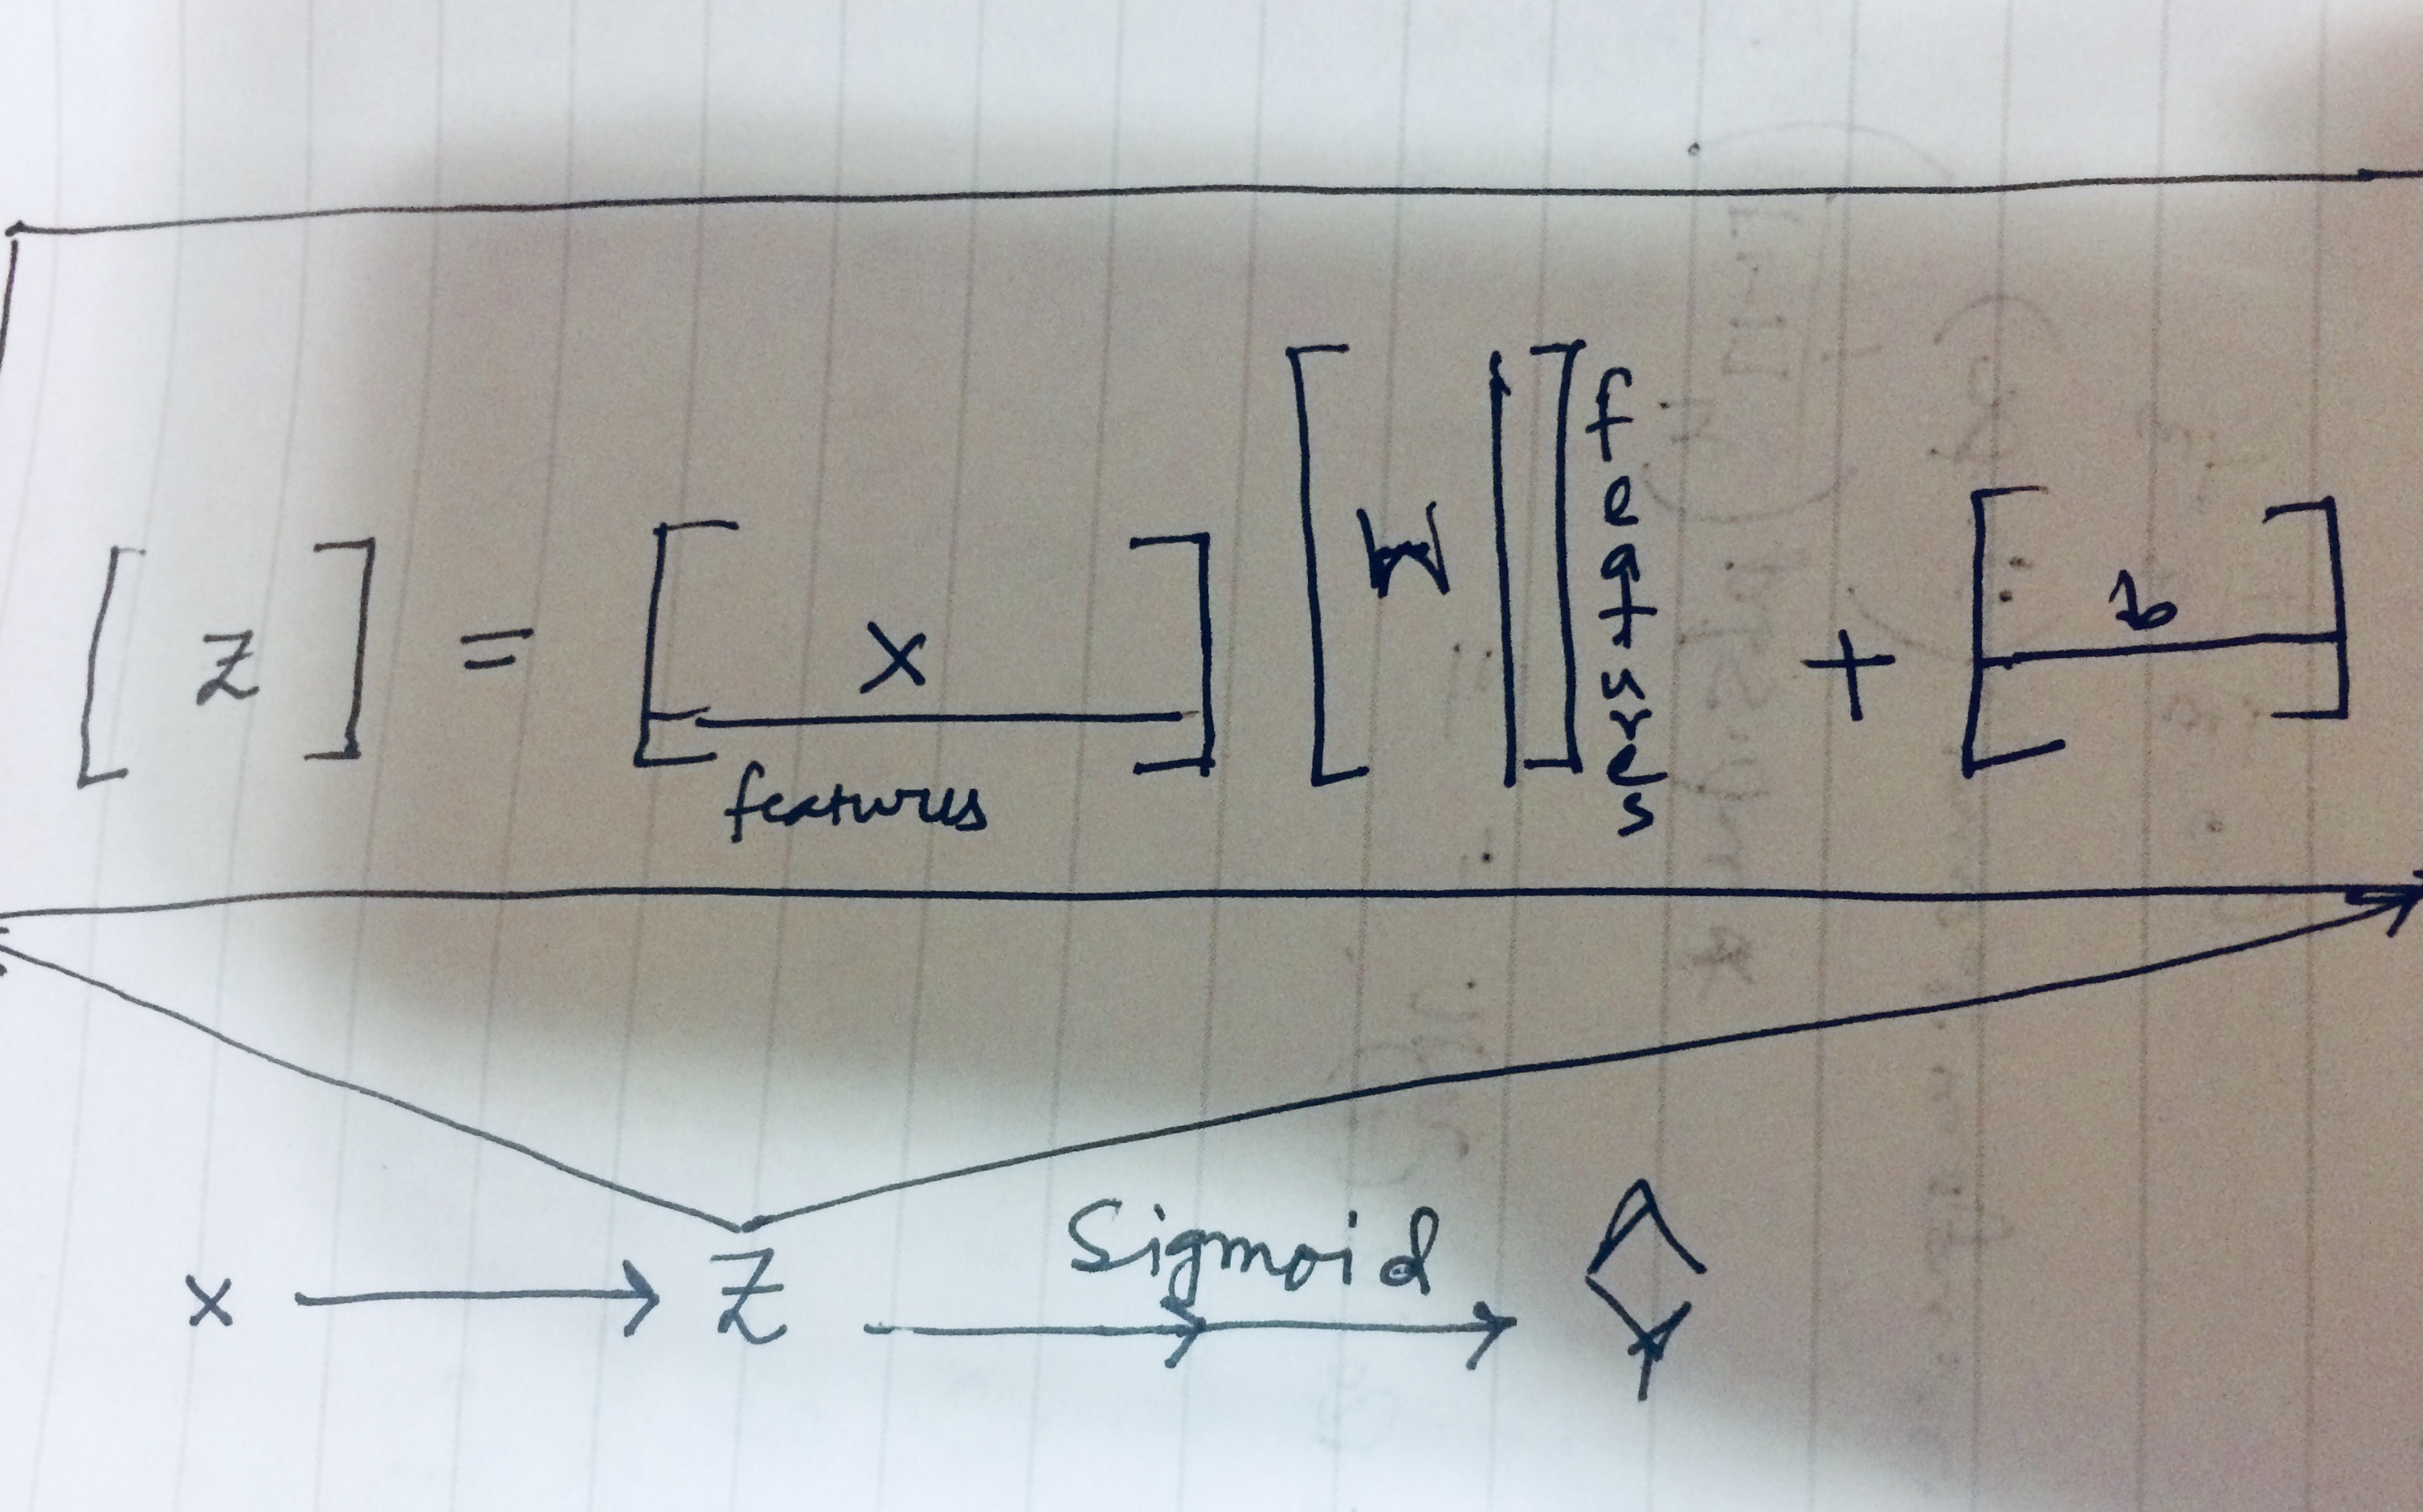 [ Z ] = [ X ] [ W ] + [ b ]
features
features
Sigmoid
X → Z → Ŷ